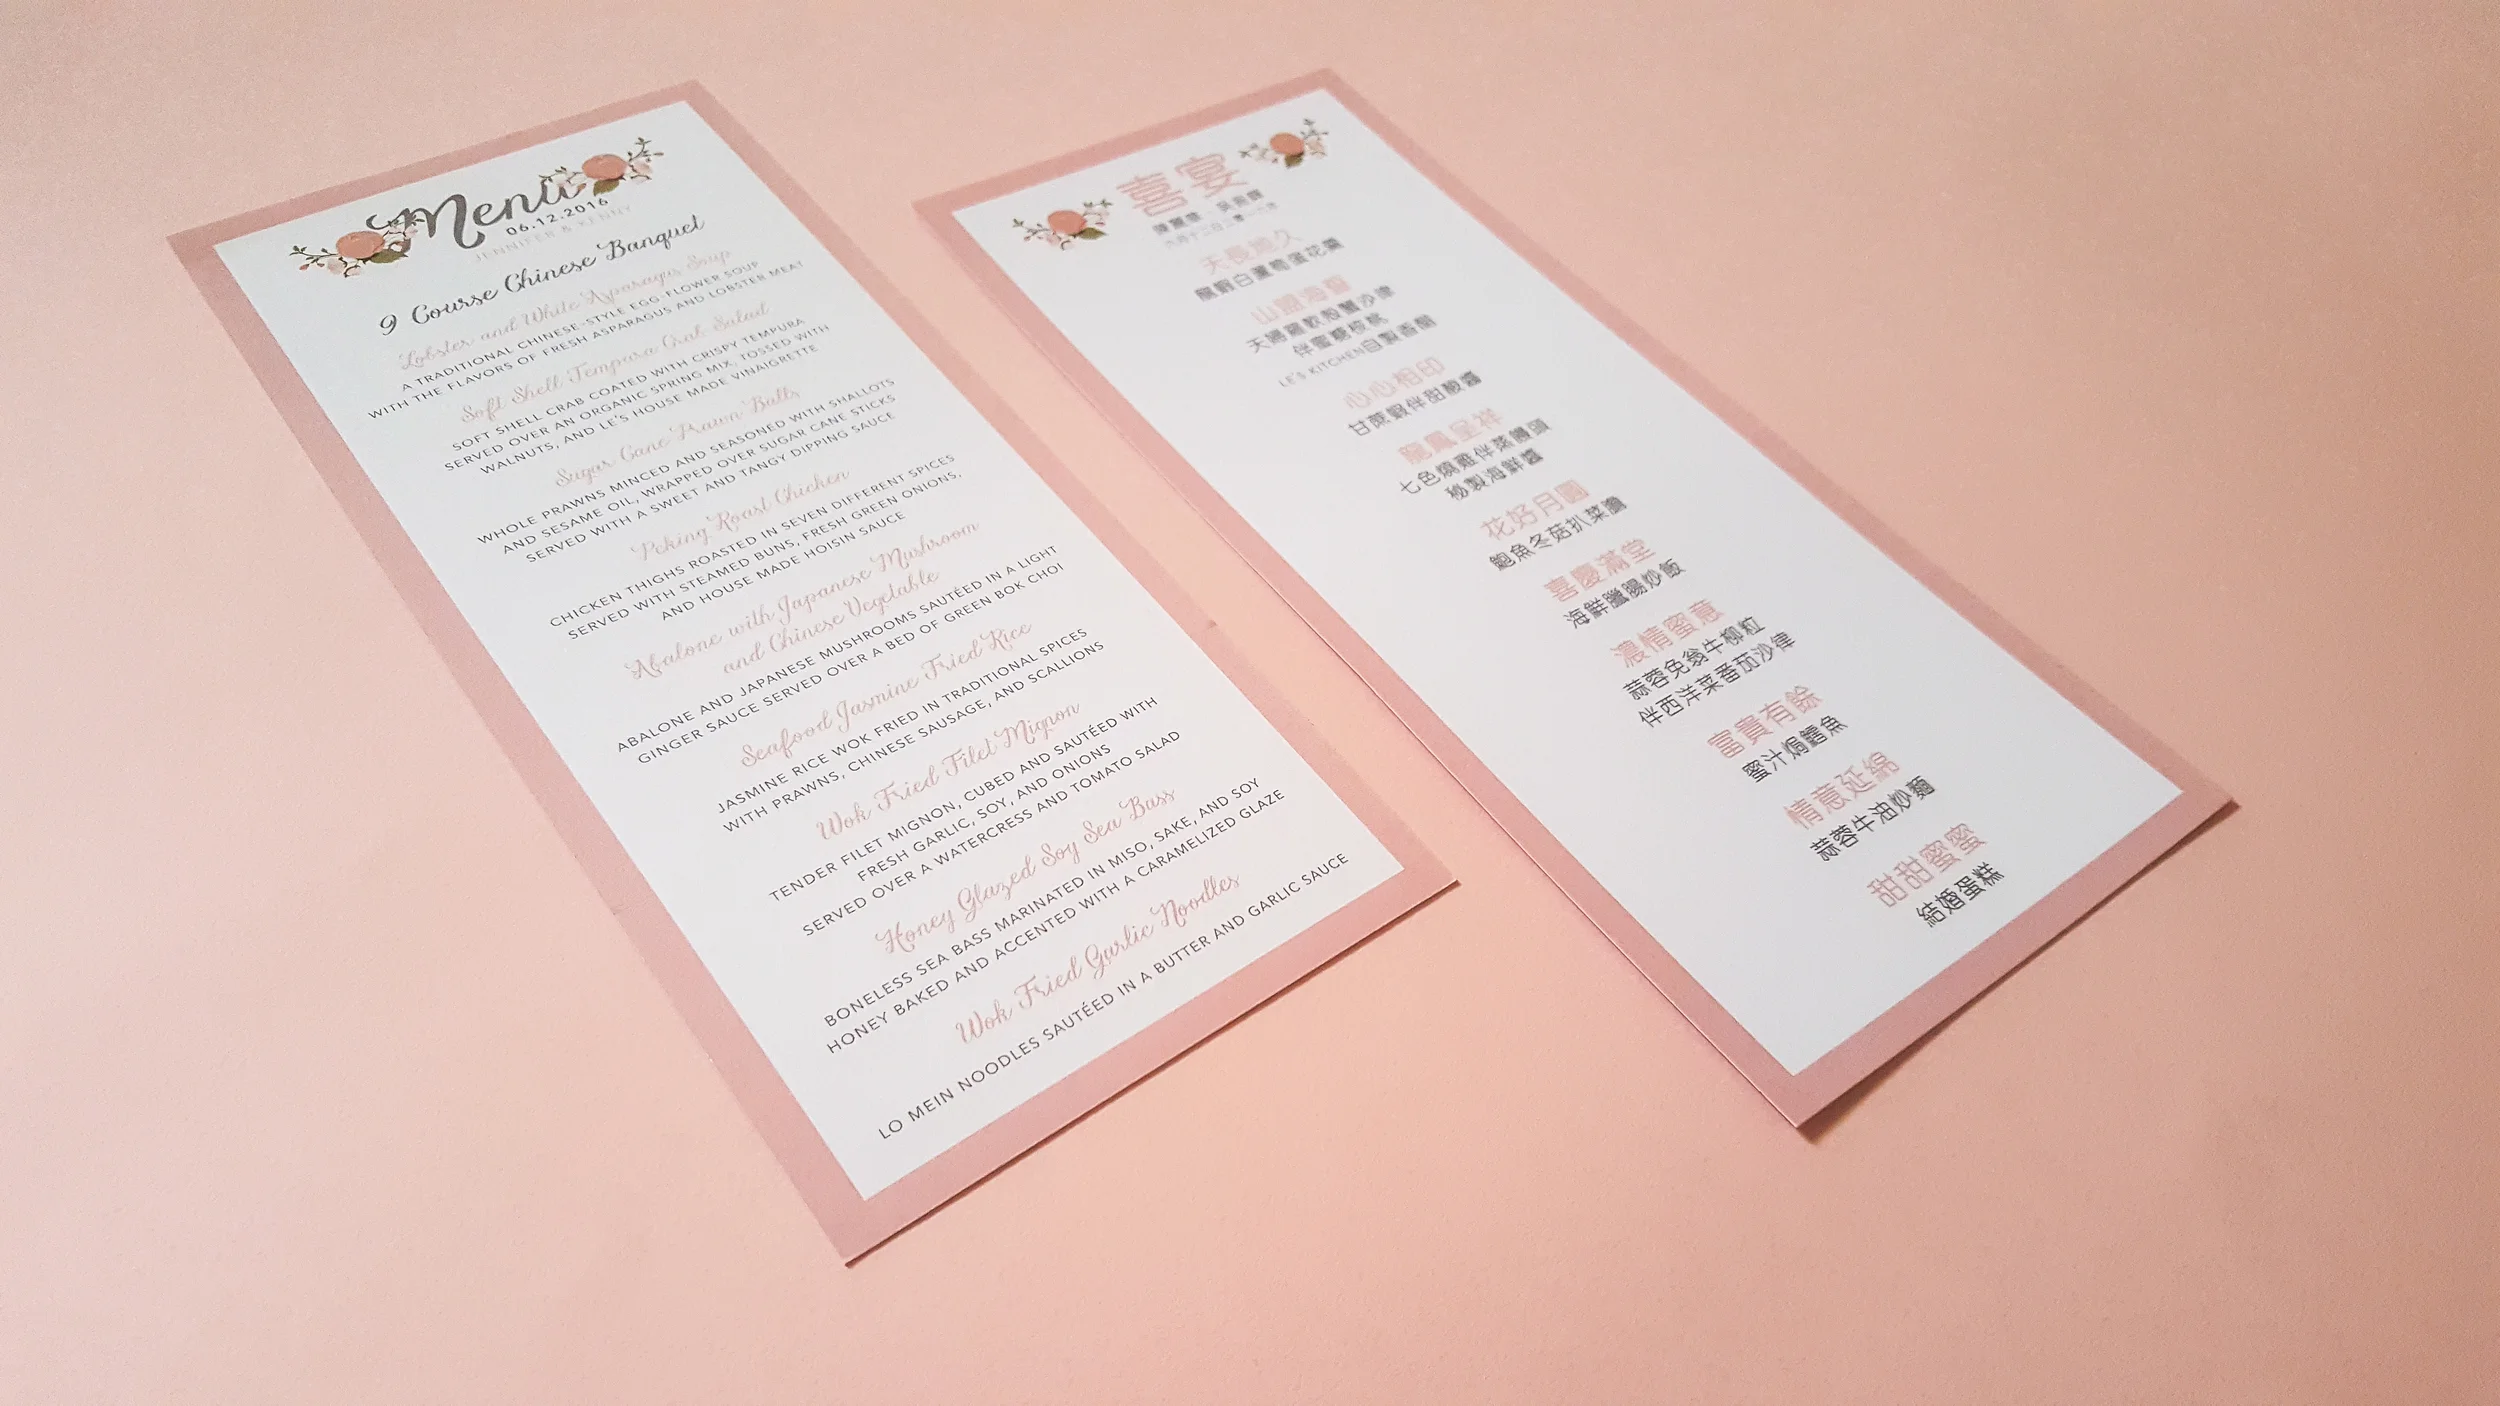 Menu
06.12.2016
JENNIFER & KENNY
9 Course Chinese Banquet
Lobster and White Asparagus Soup
A TRADITIONAL CHINESE-STYLE EGG FLOWER SOUP
WITH THE FLAVORS OF FRESH ASPARAGUS AND LOBSTER MEAT
Soft Shell Tempura Crab Salad
SOFT SHELL CRAB COATED WITH CRISPY TEMPURA
SERVED OVER AN ORGANIC SPRING MIX, TOSSED WITH
WALNUTS, AND LE'S HOUSE MADE VINAIGRETTE
Sugar Cane Prawn Balls
WHOLE PRAWNS MINCED AND SEASONED WITH SHALLOTS
AND SESAME OIL, WRAPPED OVER SUGAR CANE STICKS
SERVED WITH A SWEET AND TANGY DIPPING SAUCE
Peking Roast Chicken
CHICKEN THIGHS ROASTED IN SEVEN DIFFERENT SPICES
SERVED WITH STEAMED BUNS, FRESH GREEN ONIONS,
AND HOUSE MADE HOISIN SAUCE
Abalone with Japanese Mushroom
and Chinese Vegetable
ABALONE AND JAPANESE MUSHROOMS SAUTÉED IN A LIGHT
GINGER SAUCE SERVED OVER A BED OF GREEN BOK CHOI
Seafood Jasmine Fried Rice
JASMINE RICE WOK FRIED IN TRADITIONAL SPICES
WITH PRAWNS, CHINESE SAUSAGE, AND SCALLIONS
Wok Fried Filet Mignon
TENDER FILET MIGNON, CUBED AND SAUTÉED WITH
FRESH GARLIC, SOY, AND ONIONS
SERVED OVER A WATERCRESS AND TOMATO SALAD
Honey Glazed Soy Sea Bass
BONELESS SEA BASS MARINATED IN MISO, SAKE, AND SOY
HONEY BAKED AND ACCENTED WITH A CARAMELIZED GLAZE
Wok Fried Garlic Noodles
LO MEIN NOODLES SAUTÉED IN A BUTTER AND GARLIC SAUCE
喜宴
天長地久
龍蝦白蘆筍蛋花羹
山盟海誓
天婦羅軟殼蟹沙律
伴蜜糖核桃
LE'S KITCHEN自製香醋
心心相印
甘蔗蝦伴甜酸醬
龍鳳呈祥
七色燒雞伴蒸饅頭
秘製海鮮醬
花好月圓
鮑魚冬菇扒菜膽
喜慶滿堂
海鮮臘腸炒飯
濃情蜜意
蒜蓉免翁牛柳粒
伴西洋菜番茄沙律
富貴有餘
蜜汁焗鱈魚
情意延綿
蒜蓉牛油炒麵
甜甜蜜蜜
結婚蛋糕